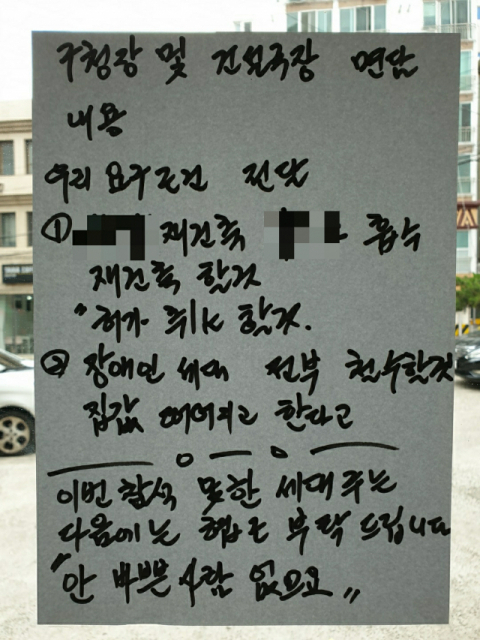 구청장 및 건설국장 면담
내용
우리 요구조건 전달
① 재건축 흡수
재건축 할것
"허가 취소 할것.
② 장애인 세대 전부 철수할것
집값 떨어지고 한다고
이번 참석 못한 세대주는
다음에는 협조 부탁 드립니다
"안 바쁜 사람 없으요"